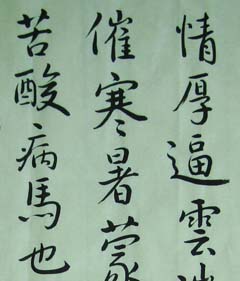 情厚逼雲
催寒暑蒙
苦酸病馬也